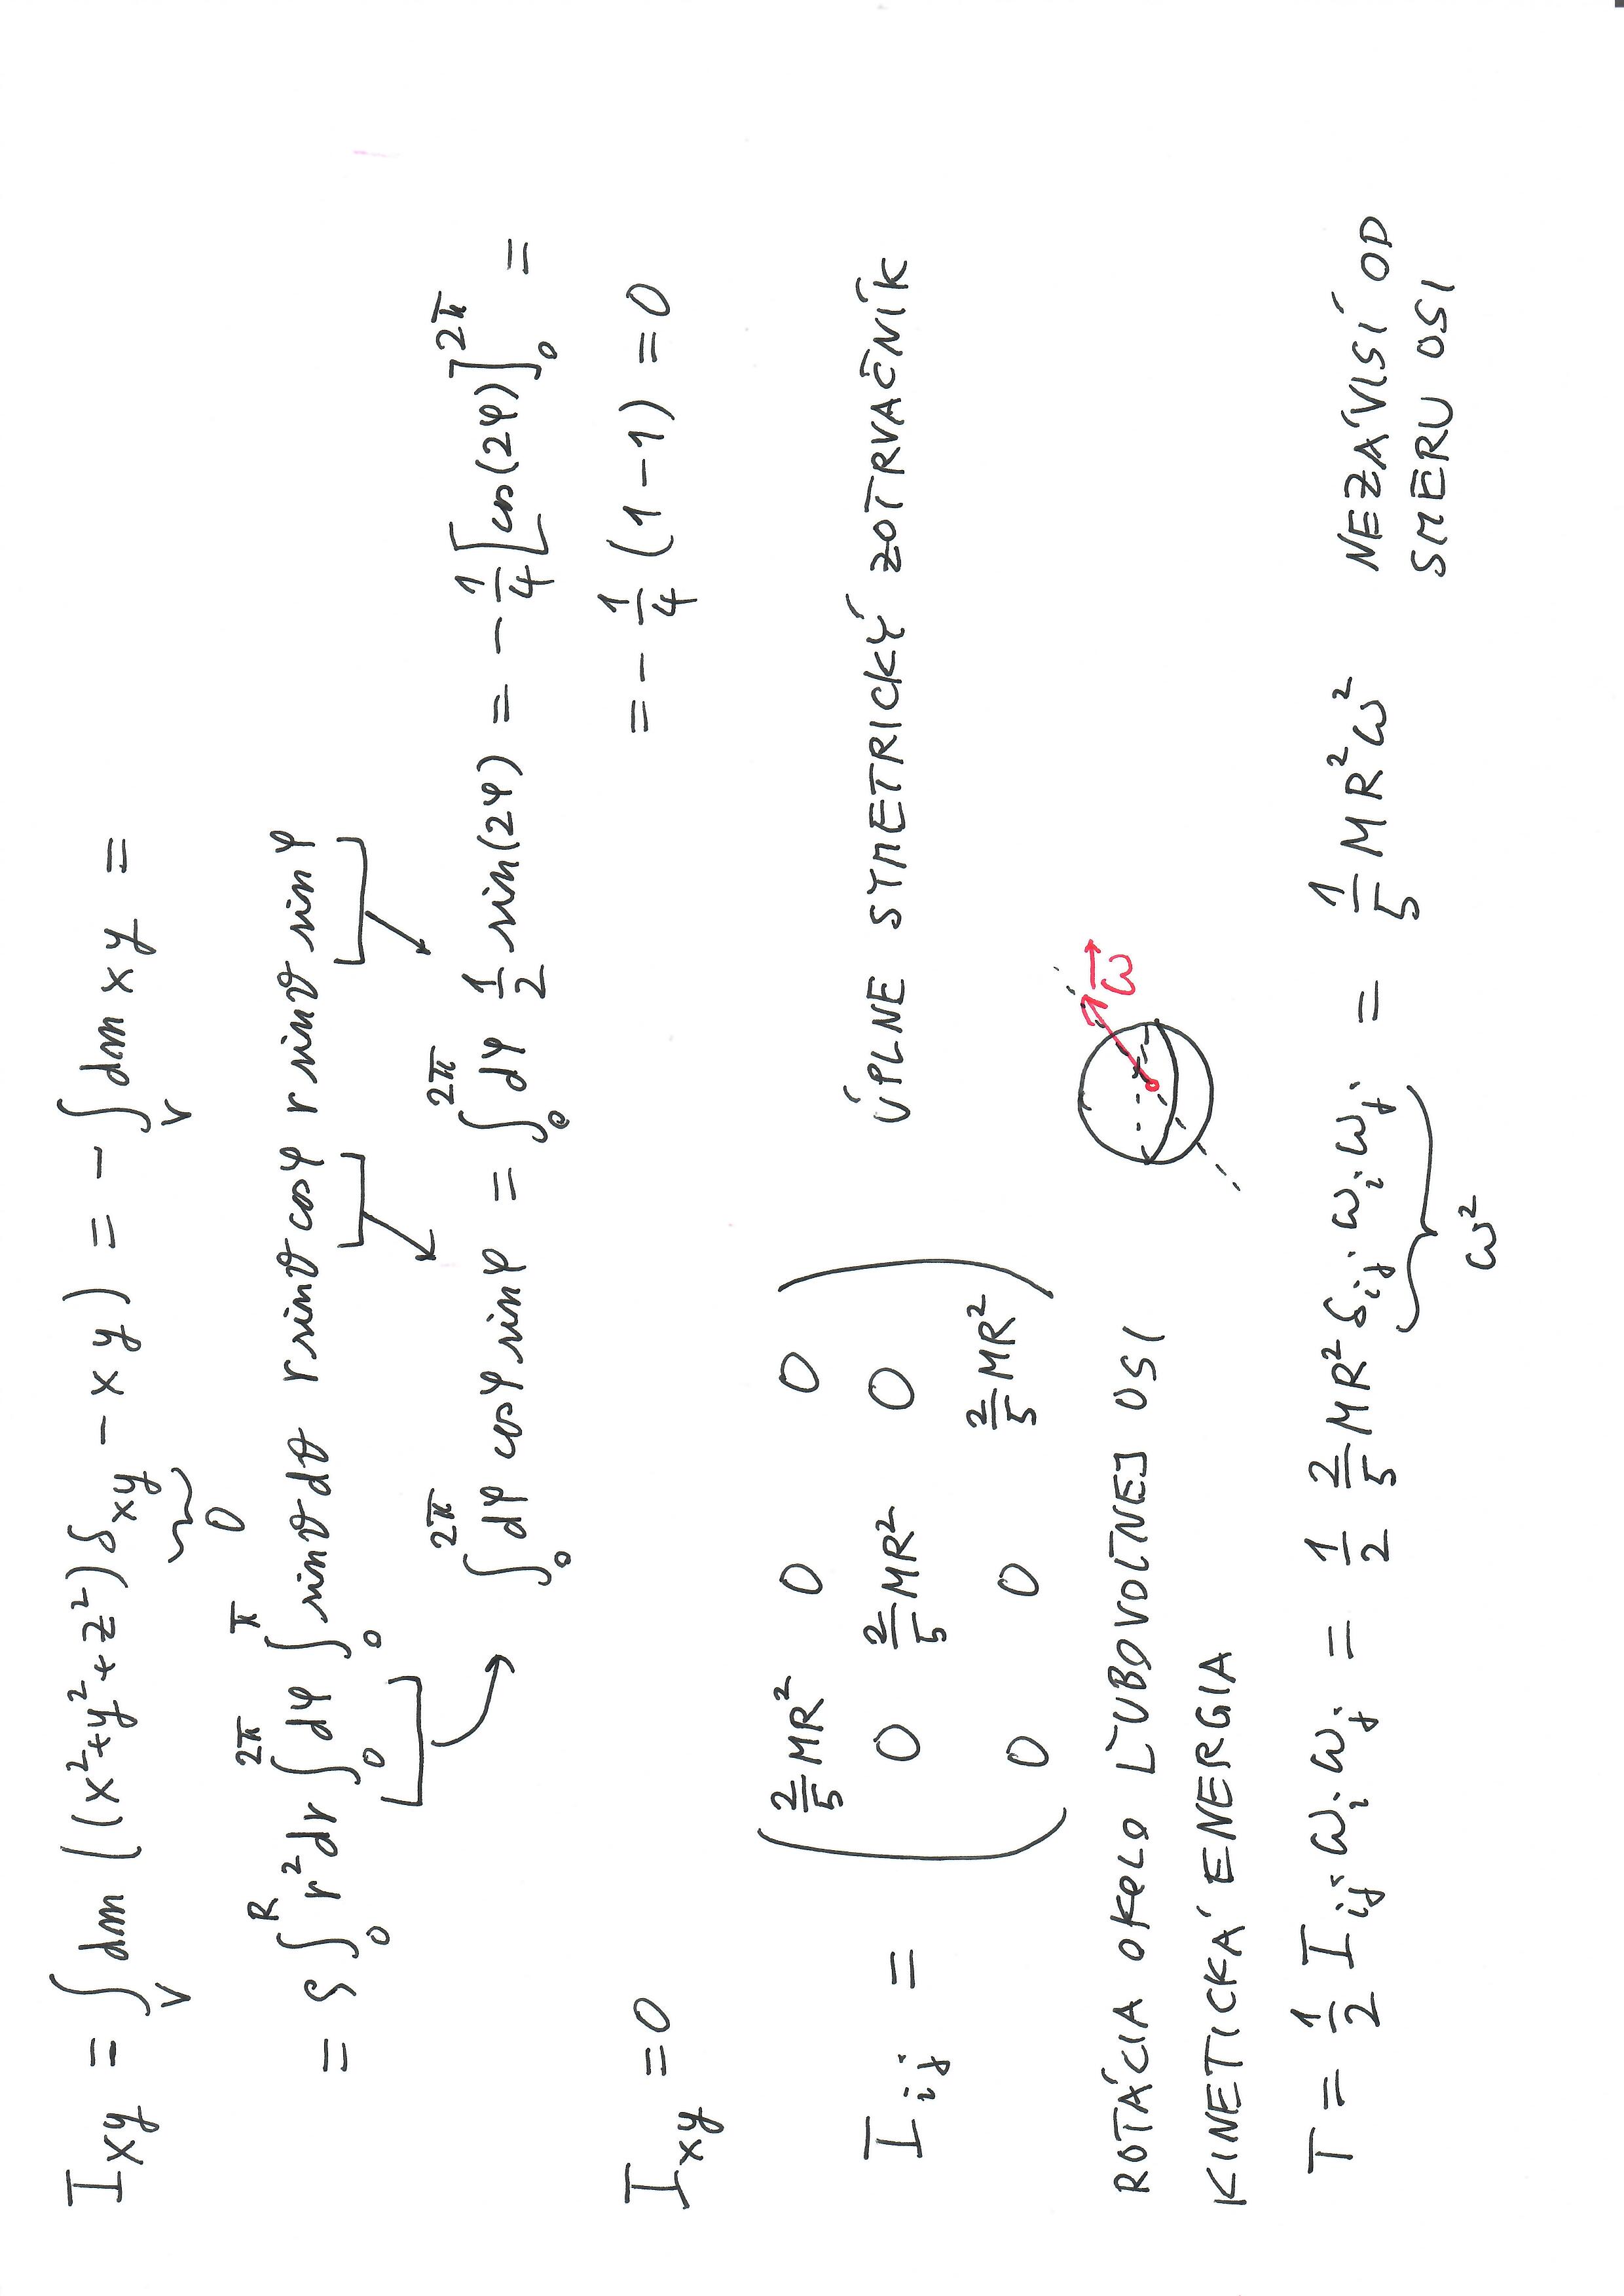 I_xy = ∫_V dm ((x²+y²+z²) δ_xy − x y) = − ∫_V dm x y =
0
= ρ ∫_0^R r² dr ∫_0^2π dφ ∫_0^π sinϑ dϑ r sinϑ cosφ r sinϑ sinφ
∫_0^2π dφ cosφ sinφ = ∫_0^2π dφ 1/2 sin(2φ) = − 1/4 [cos(2φ)]_0^2π =
= − 1/4 (1−1) = 0
I_xy = 0
I_ij = ( 2/5 MR² 0 0
0 2/5 MR² 0
0 0 2/5 MR² )
ÚPLNE SYMETRICKÝ ZOTRVAČNÍK
ROTÁCIA OKOLO ĽUBOVOĽNEJ OSI
ω⃗
KINETICKÁ ENERGIA
T = 1/2 I_ij ω_i ω_j = 1/2 2/5 MR² δ_ij ω_i ω_j = 1/5 MR² ω²
ω²
NEZÁVISÍ OD
SMĚRU OSI